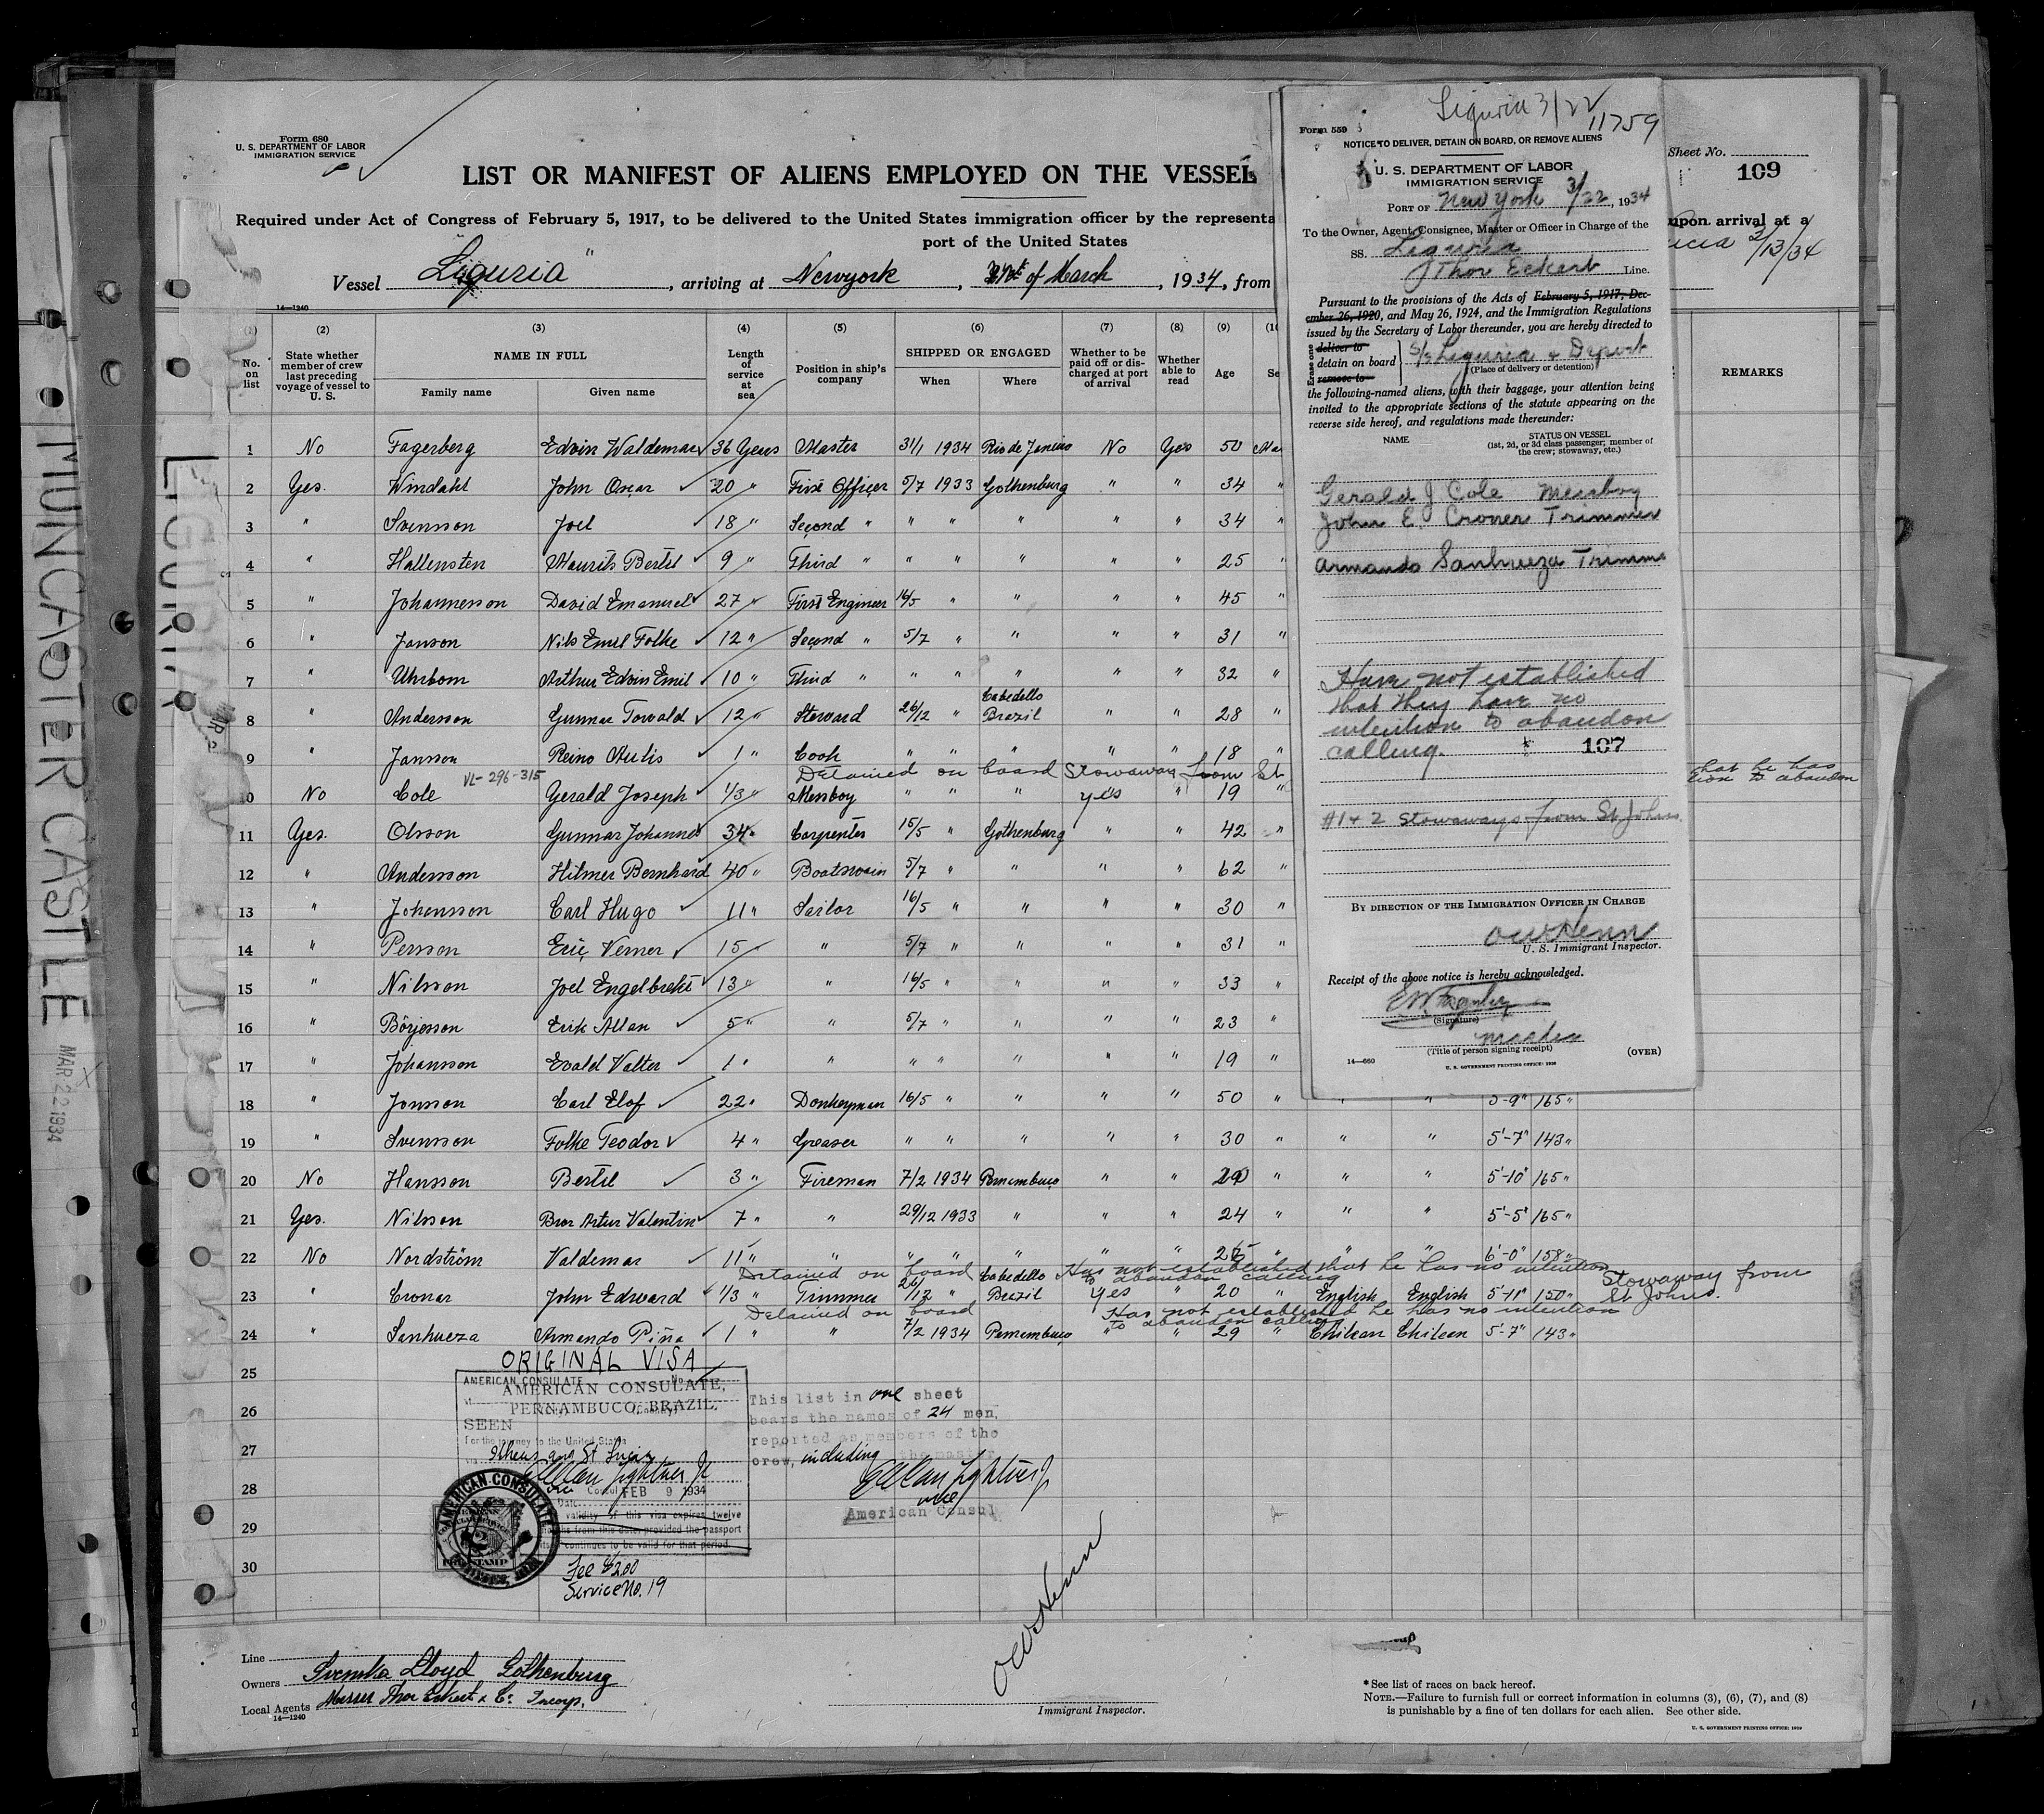 Form 680
U. S. DEPARTMENT OF LABOR
IMMIGRATION SERVICE
LIST OR MANIFEST OF ALIENS EMPLOYED ON THE VESSEL
Required under Act of Congress of February 5, 1917, to be delivered to the United States immigration officer by the representa
port of the United States
Vessel "Liguria", arriving at Newyork, of March, 1934, from
14—1240
(1) (2) (3) (4) (5) (6) (7) (8) (9)
No. on list
State whether member of crew last preceding voyage of vessel to U. S.
NAME IN FULL
Family name Given name
Length of service at sea
Position in ship's company
SHIPPED OR ENGAGED
When Where
Whether to be paid off or discharged at port of arrival
Whether able to read
Age
REMARKS
1 No Fagerberg Edvin Waldemar 36 Years Master 31/1 1934 Rio de Janeiro No Yes 50
2 Yes. Windahl John Oscar 20 " First Officer 5/7 1933 Gothenburg " " 34 "
3 " Svensson Joel 18 " Second " " " " " " 34 "
4 " Hallensten Maurits Bertil 9 " Third " " " " " " 25 "
5 " Johannesson David Emanuel 27 " First Engineer 16/5 " " " " 45 "
6 " Janson Nils Emil Folke 12 " Second " 5/7 " " " " 31 "
7 " Uhrbom Arthur Edvin Emil 10 " Third " " " " " " 32 "
8 " Andersson Gunnar Torvald 12 " Steward 26/12 " Cabedello Brazil " " 28 "
9 " Jansson Reino Aulis 1 " Cook " " " " " 18 "
VL-296-315
Detained on board Stowaway from St
10 No Cole Gerald Joseph 1/3 " Messboy " " " yes " 19 "
11 Yes. Olsson Gunnar Johannes 34 " Carpenter 15/5 " Gothenburg " " 42 "
12 " Andersson Hilmer Bernhard 40 " Boatswain 5/7 " " " " 62 "
13 " Johansson Carl Hugo 11 " Sailor 16/5 " " " " 30 "
14 " Persson Eric Verner 15 " " 5/7 " " " " 31 "
15 " Nilsson Joel Engelbrekt 13 " " 16/5 " " " " 33 "
16 " Börjesson Erik Allan 5 " " 5/7 " " " " 23 "
17 " Johansson Evald Valter 1 " " " " " " " 19 "
18 " Jonsson Carl Elof 22 " Donkeyman 16/5 " " " " 50 " " " 5'-9" 165 "
19 " Svensson Folke Teodor 4 " Greaser " " " " " 30 " " " 5'-7" 143 "
20 No Hansson Bertil 3 " Fireman 7/2 1934 Pernambuco " " " " " 5'-10" 165 "
21 Yes. Nilsson Bror Artur Valentin 7 " " 29/12 1933 " " " 24 " " " 5'-5" 165 "
22 No Nordström Valdemar 11 " " " " " " " " " " 6'-0" 158 "
Detained on board Has not established that he has no intention to abandon calling
23 " Cronar John Edward 1/3 " Trimmer 26/12 " Cabedello Brazil yes " 20 " English English 5'-11" 150 " Stowaway from St Johns.
Detained on board Has not established he has no intention to abandon calling
24 " Sanhueza Armando Piña 1 " " 7/2 1934 Pernambuco " " 29 " Chilean Chilean 5'-7" 143 "
25
26
27
28
29
30
ORIGINAL VISA
AMERICAN CONSULATE No.
AMERICAN CONSULATE,
PERNAMBUCO, BRAZIL.
SEEN
For the journey to the United States
Consul FEB 9 1934
Date
validity of this visa expires twelve
months from this date, provided the passport
continues to be valid for that period.
AMERICAN CONSULATE
Fee $2.00
Service No. 19
This list in one sheet
bears the names of 24 men,
reported as members of the
crew, including the master
American Consul
Line
Owners Svenska Lloyd Gothenburg
Local Agents Messrs Thor Eckert & Co. Incorp.
14—1240
Immigrant Inspector.
*See list of races on back hereof.
NOTE.—Failure to furnish full or correct information in columns (3), (6), (7), and (8)
is punishable by a fine of ten dollars for each alien. See other side.
U. S. GOVERNMENT PRINTING OFFICE: 1929
Sheet No.
109
upon arrival at a
3/13/34
that he has
tion to abandon
Liguria 3/22
11759
Form 559
NOTICE TO DELIVER, DETAIN ON BOARD, OR REMOVE ALIENS
U. S. DEPARTMENT OF LABOR
IMMIGRATION SERVICE
PORT OF New York 3/22, 1934
To the Owner, Agent, Consignee, Master or Officer in Charge of the
SS. Liguria
Thor Eckert Line.
Pursuant to the provisions of the Acts of February 5, 1917, Dec-
ember 26, 1920, and May 26, 1924, and the Immigration Regulations
issued by the Secretary of Labor thereunder, you are hereby directed to
Erase one
deliver to
detain on board
remove to
S/S Liguria & Deport
(Place of delivery or detention)
the following-named aliens, with their baggage, your attention being
invited to the appropriate sections of the statute appearing on the
reverse side hereof, and regulations made thereunder:
NAME STATUS ON VESSEL
(1st, 2d, or 3d class passenger; member of
the crew; stowaway, etc.)
Gerald J Cole Messboy
John E. Croner Trimmer
Armando Sanhueza Trimme
Have not established
that they have no
intention to abandon
calling. 107
#1 + 2 Stowaways from St Johns.
BY DIRECTION OF THE IMMIGRATION OFFICER IN CHARGE
U. S. Immigrant Inspector.
Receipt of the above notice is hereby acknowledged.
(Signature)
Master
(Title of person signing receipt)
14—660
(OVER)
U. S. GOVERNMENT PRINTING OFFICE: 1930
MUNCASTER CASTLE
MAR 22 1934
LIGURIA